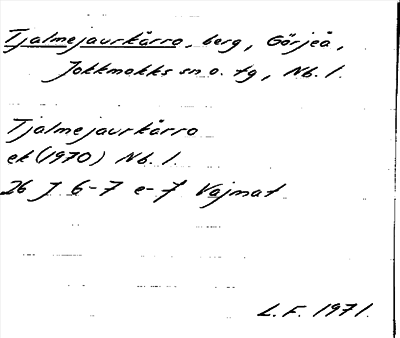 Tjalmejaurkårro, berg, Görjeå,
Jokkmokks sn o. tg, Nb. l.
Tjalmejaurkårro
ek (1970) Nb. l.
26 J 6-7 e-f Vajmat
L.F. 1971.